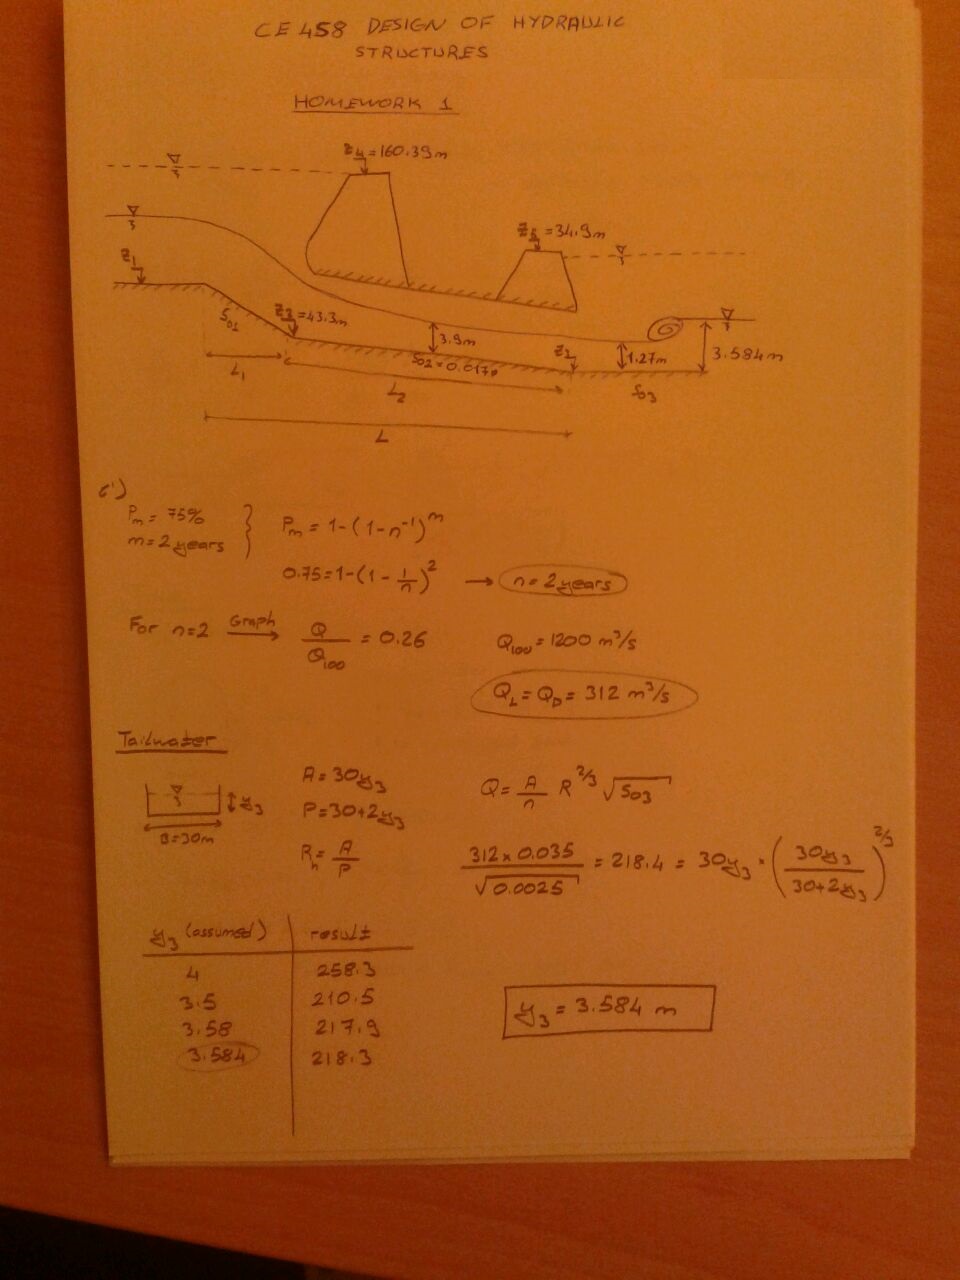 CE 458 DESIGN OF HYDRAULIC
STRUCTURES
HOMEWORK 1
Z4 = 160.39m
Z5 = 34.9m
Z1
S01
Z2 = 43.3m
3.9m
Z3
1.27m
3.584m
L1
L2
S03
L
Pm = 75%
m = 2 years
Pm = 1-(1-n^-1)^m
0.75 = 1-(1-1/n)^2 → n = 2 years
For n=2 Graph → Q/Q100 = 0.26
Q100 = 1200 m³/s
QL = QD = 312 m³/s
Tailwater
y3
B = 30m
A = 30y3
P = 30+2y3
Rh = A/P
Q = A/n R^2/3 √S03
312 x 0.035/√0.0025 = 218.4 = 30y3 * (30y3/30+2y3)^2/3
y3 (assumed) result
4 258.3
3.5 210.5
3.58 217.9
3.584 218.3
y3 = 3.584 m